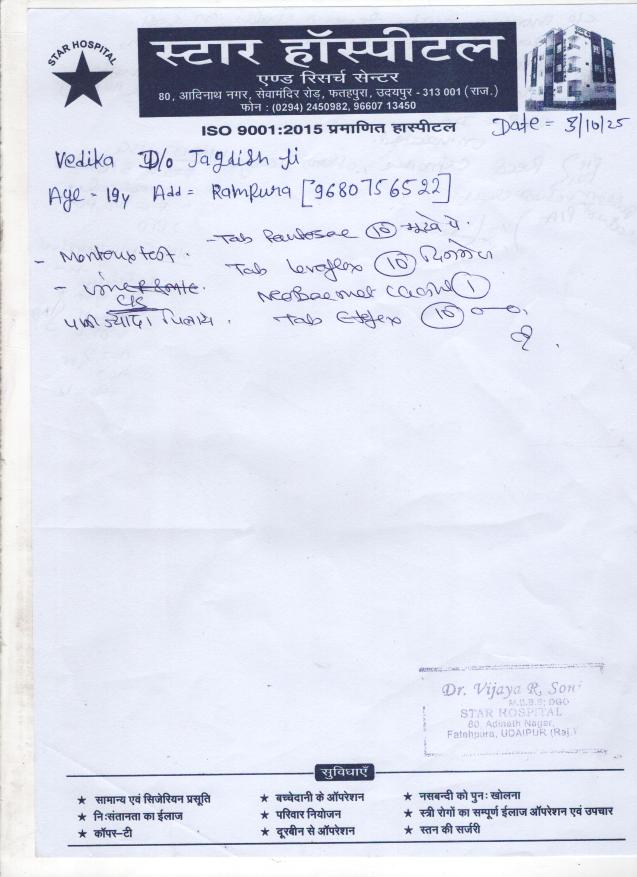 STAR HOSPITAL
स्टार हॉस्पीटल
एण्ड रिसर्च सेन्टर
80, आदिनाथ नगर, सेवामंदिर रोड़, फतहपुरा, उदयपुर - 313 001 (राज.)
फोन : (0294) 2450982, 96607 13450
ISO 9001:2015 प्रमाणित हास्पीटल
Date = 3/10/25
Vedika D/o Jagdish Ji
Age - 19y Add = Rampura [9680756522]
- Tab Pantosec (10) भूखे पे.
- Montoux test.
Tab levoflex (10) दिन में
- Urine
C/S
(1)
पानी ज्यादा पिलाये.
Tab (10)
Dr. Vijaya R. Soni
M.B.B.S; DGO
STAR HOSPITAL
80, Adinath Nagar,
Fatehpura, UDAIPUR (Raj.)
सुविधाएँ
★ सामान्य एवं सिजेरियन प्रसूति ★ बच्चेदानी के ऑपरेशन ★ नसबन्दी को पुनः खोलना
★ निःसंतानता का ईलाज ★ परिवार नियोजन ★ स्त्री रोगों का सम्पूर्ण ईलाज ऑपरेशन एवं उपचार
★ कॉपर-टी ★ दूरबीन से ऑपरेशन ★ स्तन की सर्जरी